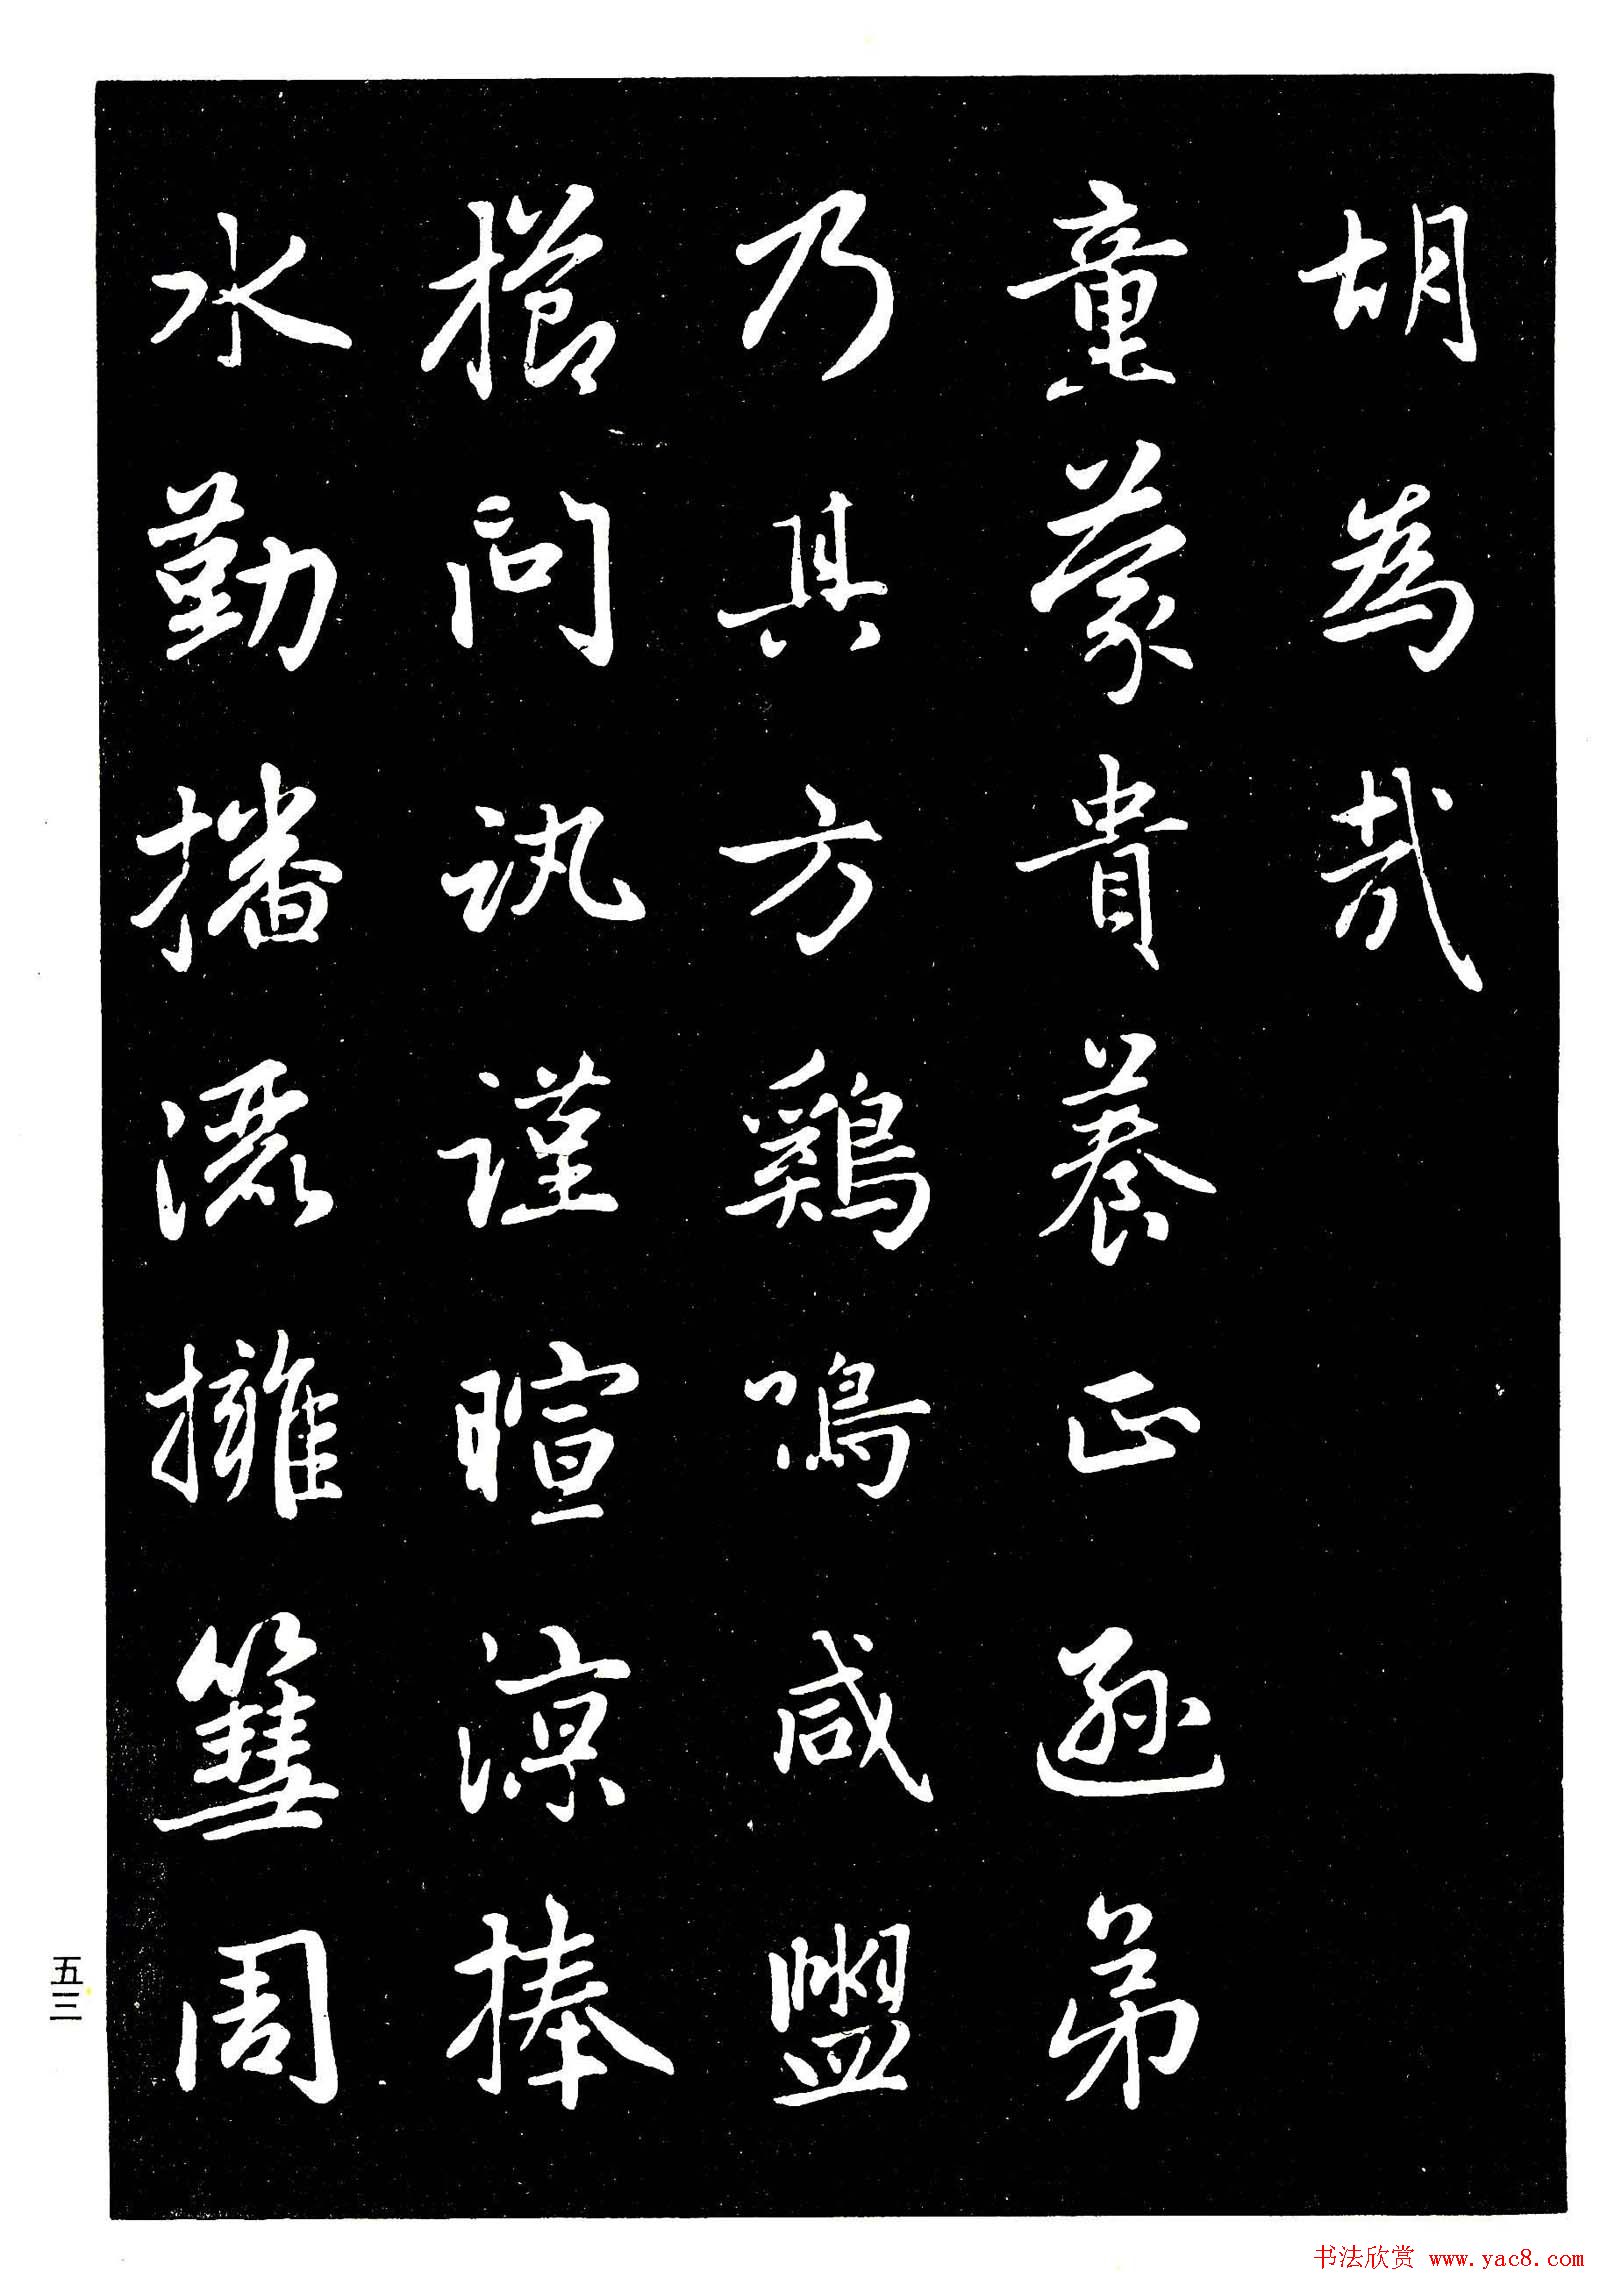 胡為哉
童蒙貴養正遜弟
乃其方鷄鳴咸盥
櫛問訊謹暄涼捧
水勤播灑擁篲周
五三
书法欣赏 www.yac8.com